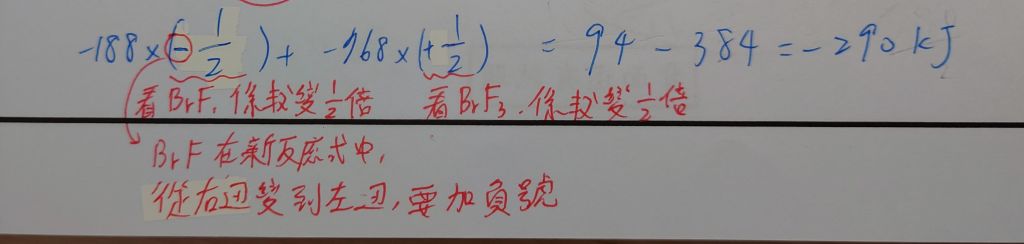 -188×(-1/2)+ -768×(+1/2) = 94 - 384 = -290 kJ
看BrF,係數變1/2倍 看BrF₃,係數變1/2倍
BrF在新反應式中,
從右边變到左边,要加負號